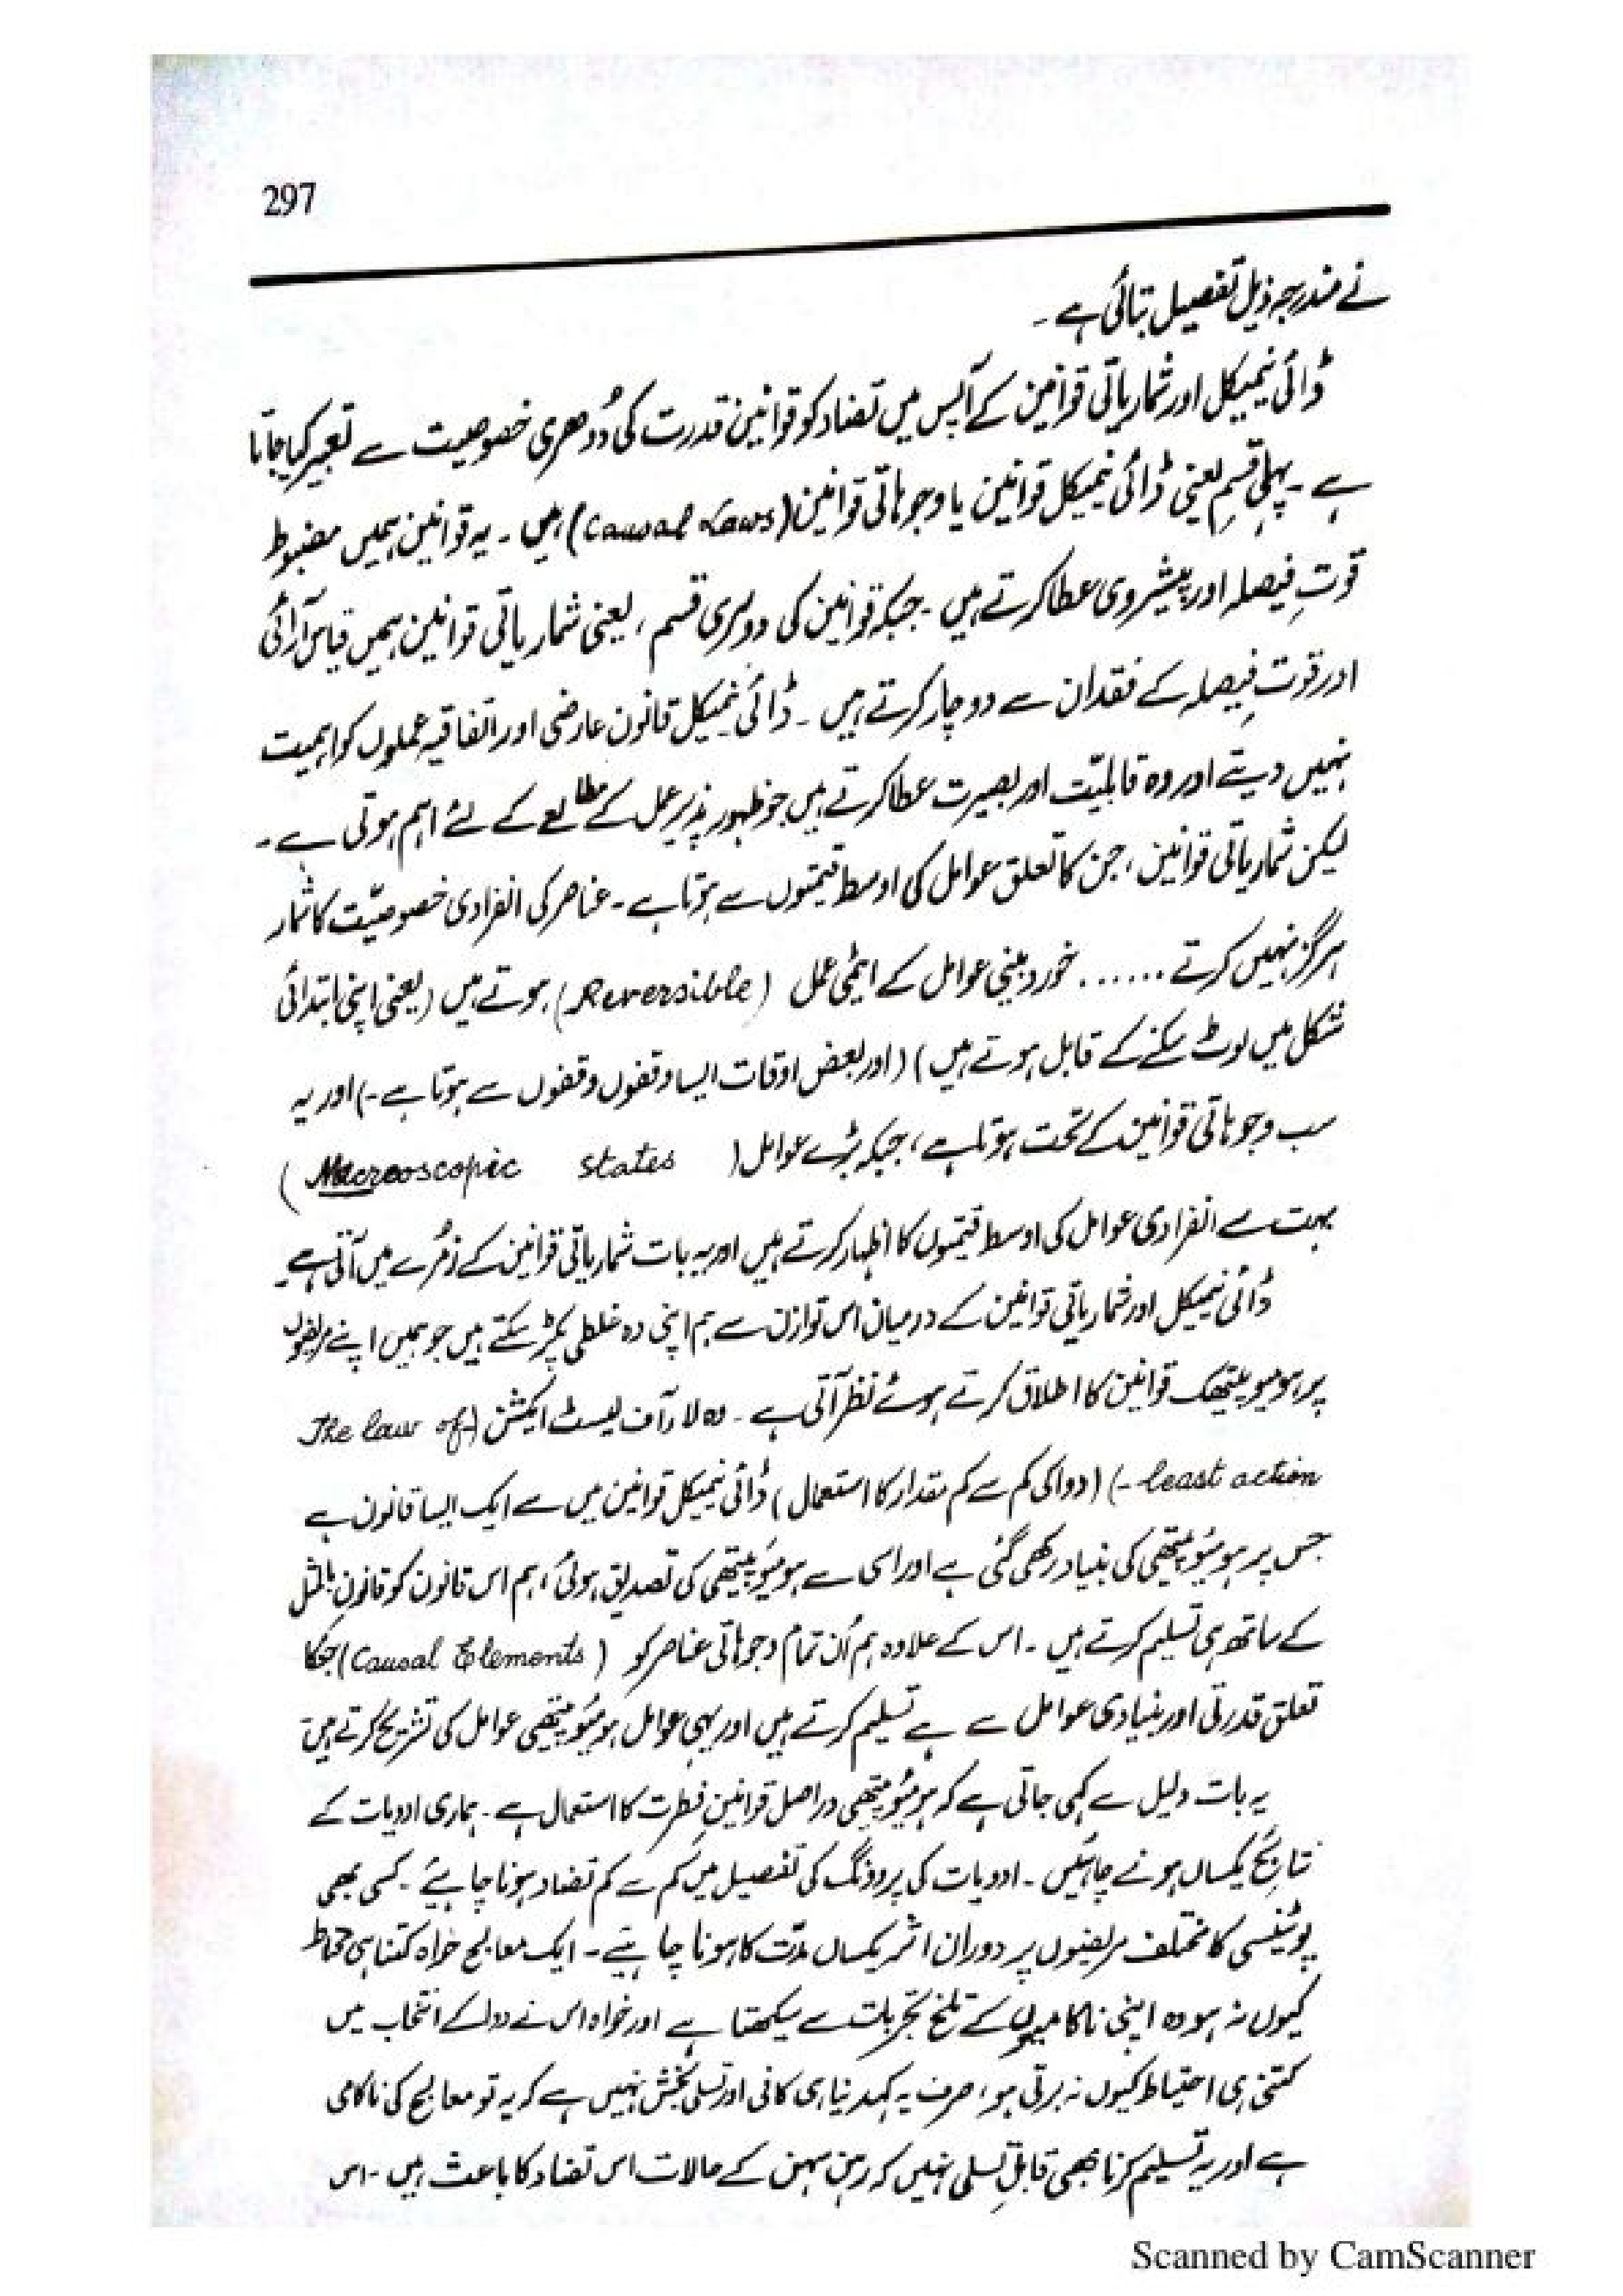 297
نے مندرجہ ذیل تفصیل بتائی ہے ۔
ڈائی نیمیکل اور شماریاتی قوانین کے آپس میں تضاد کو قوانین قدرت کی دُوھری خصوصیت سے تعبیر کیا جاتا
ہے ۔ پہلی قسم یعنی ڈائی نیمیکل قوانین یا وجوہاتی قوانین (Causal Laws) ہیں ۔ یہ قوانین ہمیں مضبوط
قوتِ فیصلہ اور پیشروی عطا کرتے ہیں ۔ جبکہ قوانین کی دوسری قسم ، یعنی شماریاتی قوانین ہمیں قیاس آرائی
اور قوتِ فیصلہ کے فقدان سے دوچار کرتے ہیں ۔ ڈائی نیمیکل قانون عارضی اور اتفاقیہ عملوں کو اہمیت
نہیں دیتے اور وہ قابلیّت اور بصیرت عطا کرتے ہیں جو ظہور پذیر عمل کے مطالعے کے لئے اہم ہوتی ہے ۔
لیکن شماریاتی قوانین ، جن کا تعلق عوامل کی اوسط قیمتوں سے ہوتا ہے ۔ عناصر کی انفرادی خصوصیّت کا شمار
ہرگز نہیں کرتے ...... خوردبینی عوامل کے ایٹمی عمل (Reversible) ہوتے ہیں (یعنی اپنی ابتدائی
شکل میں لوٹ سکنے کے قابل ہوتے ہیں) (اور بعض اوقات ایسا وقفوں وقفوں سے ہوتا ہے ۔) اور یہ
سب وجوہاتی قوانین کے تحت ہوتا ہے ، جبکہ بڑے عوامل (Macrooscopic states)
بہت سے انفرادی عوامل کی اوسط قیمتوں کا اظہار کرتے ہیں اور یہ بات شماریاتی قوانین کے زمُرے میں آتی ہے ۔
ڈائی نیمیکل اور شماریاتی قوانین کے درمیان اس توازن سے ہم اپنی وہ غلطی پکڑ سکتے ہیں جو ہمیں اپنے مریضوں
پر ہومیوپیتھک قوانین کا اطلاق کرتے ہوئے نظر آتی ہے ۔ وہ لاء آف لیسٹ ایکشن (The law of
least action ۔) (دوا کی کم سے کم مقدار کا استعمال) ڈائی نیمیکل قوانین میں سے ایک ایسا قانون ہے
جس پر ہومیوپیتھی کی بنیاد رکھی گئی ہے اور اسی سے ہومیوپیتھی کی تصدیق ہوئی ، ہم اس قانون کو قانونِ بالمثل
کے ساتھ ہی تسلیم کرتے ہیں ۔ اس کے علاوہ ہم اُن تمام وجوہاتی عناصر کو (Causal Elements) جنکا
تعلق قدرتی اور بنیادی عوامل سے ہے تسلیم کرتے ہیں اور یہی عوامل ہومیوپیتھی عوامل کی تشریح کرتے ہیں
یہ بات دلیل سے کہی جاتی ہے کہ ہومیوپیتھی دراصل قوانینِ فطرت کا استعمال ہے ۔ ہماری ادویات کے
نتائج یکساں ہونے چاہئیں ۔ ادویات کی پروونگ کی تفصیل میں کم سے کم تضاد ہونا چاہیئے ۔ کسی بھی
پوٹینسی کا مختلف مریضوں پر دوران اثر یکساں مدّت کا ہونا چاہئیے ۔ ایک معالج خواہ کتنا ہی محتاط
کیوں نہ ہو وہ اپنی ناکامیوں کے تلخ تجربات سے سیکھتا ہے اور خواہ اس نے دوا کے انتخاب میں
کتنی ہی احتیاط کیوں نہ برتی ہو ، صرف یہ کہہ دینا ہی کافی اور تسلی بخش نہیں ہے کہ یہ تو معالج کی ناکامی
ہے اور یہ تسلیم کرنا بھی قابلِ تسلی نہیں کہ رہن سہن کے حالات اس تضاد کا باعث ہیں ۔ اس
Scanned by CamScanner